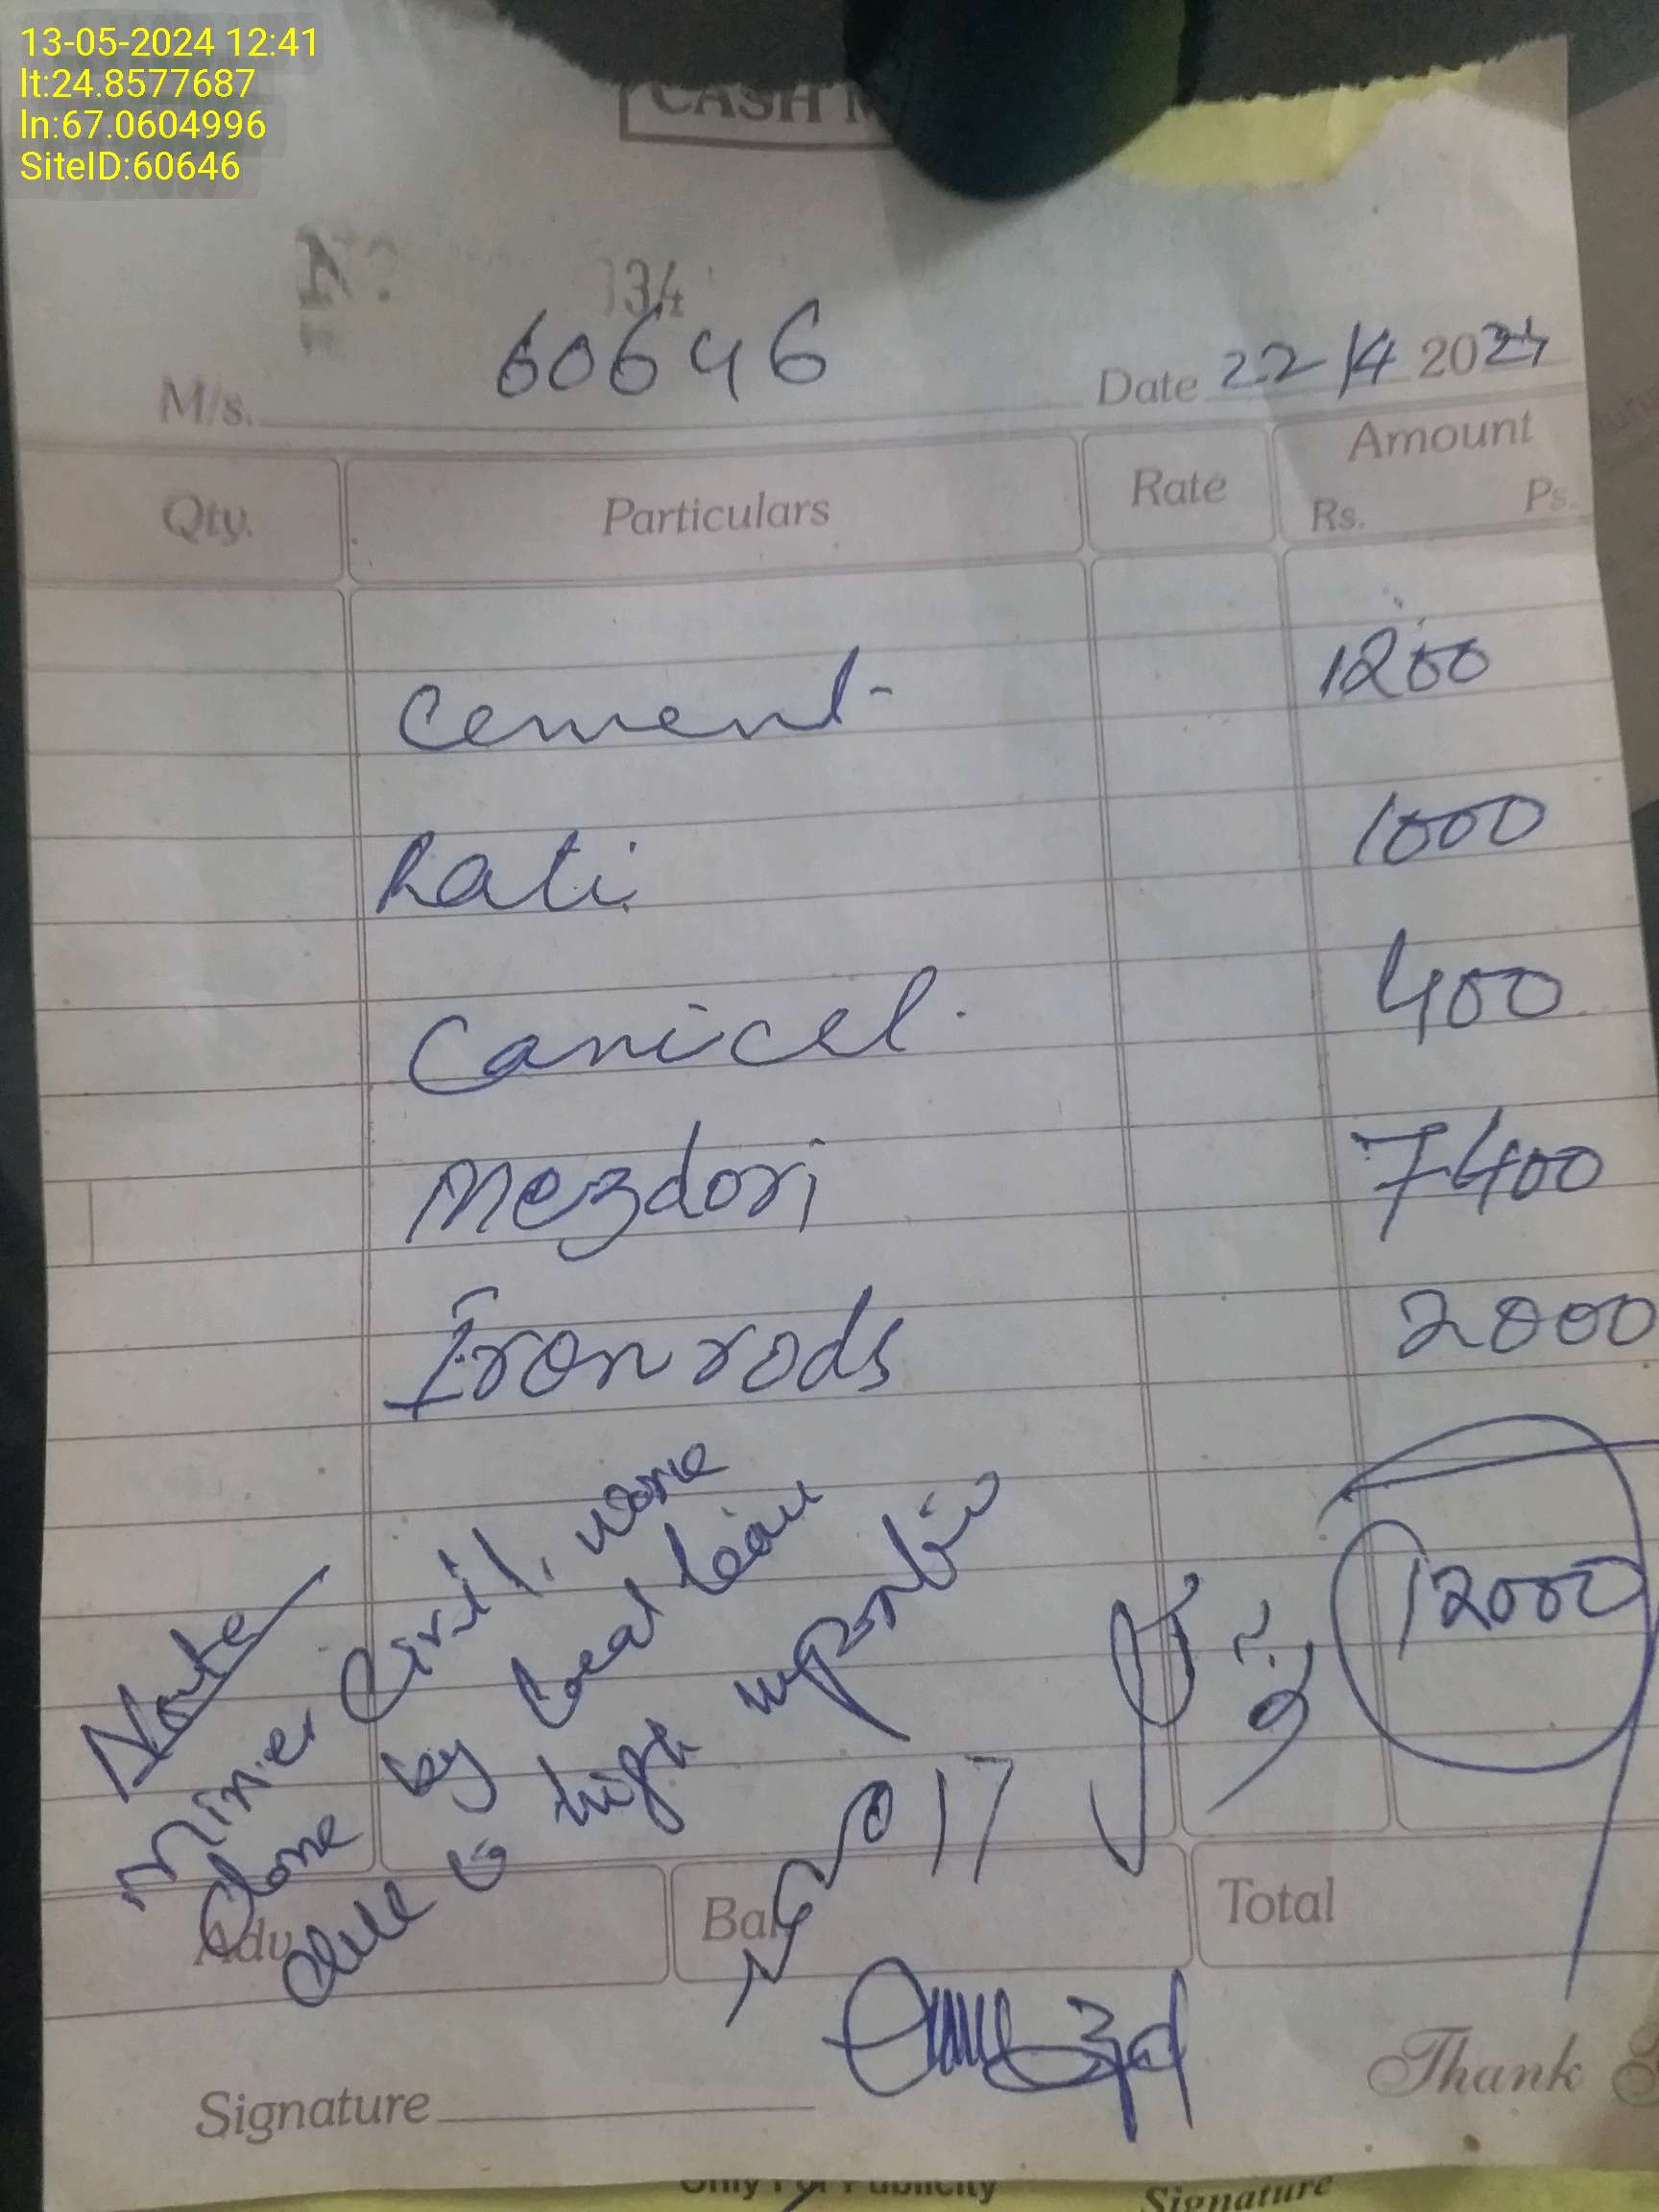 13-05-2024 12:41
lt:24.8577687
ln:67.0604996
SiteID:60646
CASH M
No 34
M/s. 60646 Date 22/4 2024
Qty. Particulars Rate Amount
Rs. Ps.
Cement 1200
Rati 1000
Canicel 400
Mezdori 7400
Iron rods 2000
12000
Note
Minier Civil work
done by local team
due to high
Adv Bal Total
Signature
Thank
Only For Publicity
Signature